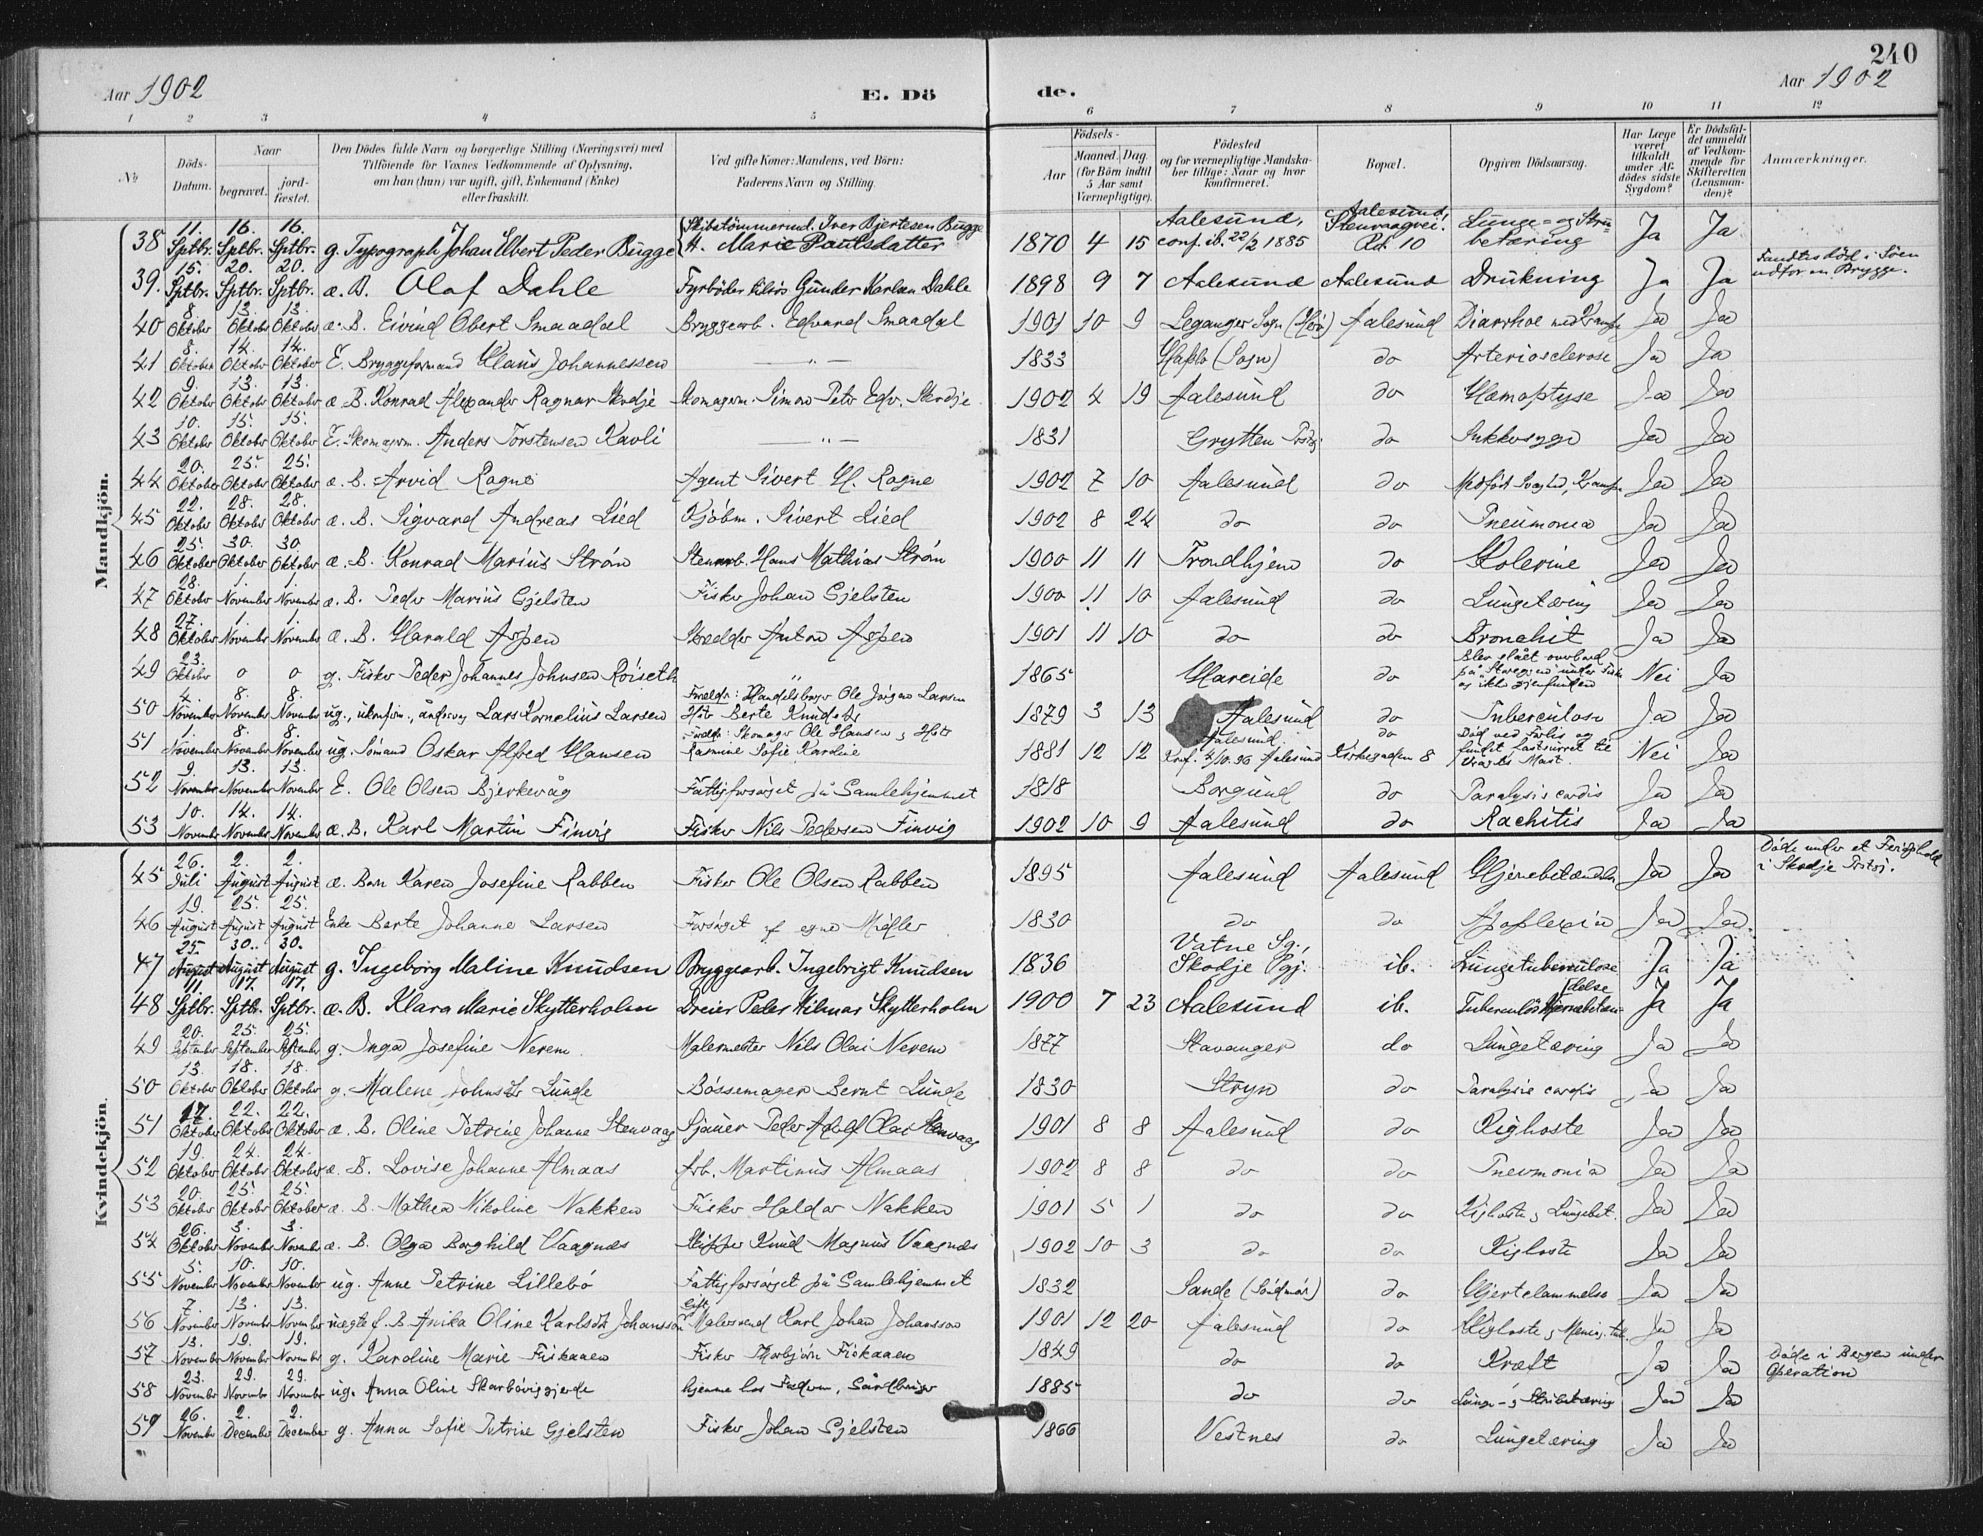 240
Aar 1902 E. Dö de. Aar 1902
1 2 3 4 5 6 7 8 9 10 11 12
№ Döds-Datum. Naar begravet. jord-fæstet. Den Dödes fulde Navn og borgerlige Stilling (Næringsvei) med Tilföiende for Voxnes Vedkommende af Oplysning, om han (hun) var ugift, gift, Enkemand (Enke) eller fraskilt. Ved gifte Koner: Mandens, ved Börn: Faderens Navn og Stilling. Födsels- Aar Maaned. Dag. (for Börn indtil 5 Aar samt Værnepligtige). Födested og for værnepligtige Mandska-ber tillige: Naar og hvor konfirmeret. Bopæl. Opgiven Dödsaarsag. Har Læge været tilkaldt under Af-dödes sidste Sygdom? Er Dödsfal-det anmeldt af Vedkom-mende for Skifteretten (Lensman-den)? Anmærkninger.
Mandkjön.
38 11. Sptbr. 16. Sptbr. 16. Sptbr. g. Typograph Johan Elbert Peder Bugge Skibstømmermd. Iver Bjertesen Bugge H. Marie Paulsdatter 1870 4 15 Aalesund, conf. ib. 22/2 1885 Aalesund, Stenvaagvei. Rd. 10 Lunge- og Stru-betæring Ja Ja
39. 15. Sptbr. 20. Sptbr. 20. Sptbr. æ. B. Olaf Dahle Fyrbøder tilsös Gunder Karlsen Dahle 1898 9 7 Aalesund Aalesund Drukning Ja Ja Fandtes död i Söen udfor en Brygge.
40 8. Oktober 13. Oktober 13. Oktober æ. B. Eivind Obert Smaadal Bryggearb. Edvard Smaadal 1901 10 9 Leganger Sogn (Herö) Aalesund Diarrhoe med Krampe Ja Ja
41 8. Oktober 14. Oktober 14. Oktober E. Bryggeformand Klaus Johannessen — „ — 1833 Hafslo (Sogn) do Arteriosclerose Ja Ja
42 9. Oktober 13. Oktober 13. Oktober æ. B. Konrad Alexander Ragnar Skodje Skomagerm. Simon Petr Edv. Skodje 1902 4 19 Aalesund do Hæmoptyse Ja Ja
43 10. Oktober 15. Oktober 15. Oktober E. Skomagerm. Anders Torstensen Kavli — „ — 1831 Grytten do Sukkersyge Ja Ja
44 20. Oktober 25. Oktober 25. Oktober æ. B. Arvid Ragne Agent Sivert H. Ragne 1902 7 10 Aalesund do Medfödt Svaghed, Krampe Ja Ja
45 22. Oktober 28. Oktober 28. Oktober æ. B. Sigvard Andreas Lied Kjöbm. Sivert Lied 1902 8 24 do do Pneumonia Ja Ja
46 25. Oktober 30. Oktober 30. Oktober æ. B. Konrad Marius Ström Stenarb. Hans Mathias Ström 1900 11 11 Trondhjem do Kolerine Ja Ja
47 28. Oktober 1. November 1. November æ. B. Peder Marius Gjelsten Fisker Johan Gjelsten 1900 11 10 Aalesund do Lungetæring Ja Ja
48 27. Oktober 1. November 1. November æ. B. Harald Aspen Skrædder Anton Aspen 1901 11 10 do do Bronchit Ja Ja
49 23. Oktober o o g. Fisker Peder Johannes Johnsen Röiseth „ 1865 Hareide do Blev slået overbord på Storeggen under Fiske og ikke gjenfunden Nei Ja
50 4. November 8. November 8. November ug., Lars Kornelius Larsen Foreldr: Handelsborger Ole Jörgen Larsen Hstr Berte Knudsdtr 1879 3 13 Aalesund do Tuberculose Ja Ja
51 1. November 8. November 8. November ug. Sömand Oskar Alfred Hansen Foreldr: Skomager Ole Hansen og Hstr Rasmine Sofie Karoline 1881 12 12 Aalesund Konf. 4/10.96 Aalesund do Kirkegaden 8 Död ved Forlis og fundet fastsurret til Vragets Mast. Nei Ja
52 9. November 13. November 13. November E. Ole Olsen Bjerkevåg Fattigforsörget på Samlehjemmet 1818 Borgund do Paralysis cordis Ja Ja
53 10. November 14. November 14. November æ. B. Karl Martin Finvig Fisker Nils Pedersen Finvig 1902 10 9 Aalesund do Rachitis Ja Ja
Kvindekjön.
45 26. Juli 2. August 2. August æ. Barn Karen Josefine Rabben Fisker Ole Olsen Rabben 1895 Aalesund Aalesund Hjernebetændelse Ja Ja Döde under et Ferieophold i Skodje Prstgj.
46 19. August 25. August 25. August Enke Berte Johanne Larsen Forsörget af egne Midler 1830 do do Apoplexia Ja Ja
47 25. August 30. August 30. August g. Ingeborg Maline Knudsen Bryggearb. Ingebrigt Knudsen 1836 Vatne Sg. Skodje Pgj. ib. Lungetuberculose Ja Ja
48 11. Sptbr. 17. Sptbr. 17. Sptbr. æ. B. Klara Marie Skytterholm Dreier Peder Hilmar Skytterholm 1900 7 23 Aalesund ib. Tuberculös Hjernebetæn-delse Ja Ja
49 20. September 25. September 25. September g. Inga Josefine Nerem Malermester Nils Olai Nerem 1877 Stavanger do Lungetæring Ja Ja
50 13. Oktober 18. Oktober 18. Oktober g. Malene Johnsdtr Lunde Bössemager Bernt Lunde 1830 Stryn do Paralysis cordis Ja Ja
51 17. Oktober 22. Oktober 22. Oktober æ. B. Oline Petrine Johanne Stenvaag Sjauer Peder Adolf Olai Stenvaag 1901 8 8 Aalesund do Kighoste Ja Ja
52 19. Oktober 24. Oktober 24. Oktober æ. B. Lovise Johanne Almaas Arb. Martinus Almaas 1902 8 8 do do Pneumonia Ja Ja
53 20. Oktober 25. Oktober 25. Oktober æ. B. Mathea Nikoline Nakken Fisker Haldor Nakken 1901 5 1 do do Kighoste og Lungebet. Ja Ja
54 26. Oktober 3. November 3. November æ. B. Olga Borghild Vaagnæs Skipper Knud Magnus Vaagnæs 1902 10 3 do do Kighoste Ja Ja
55 5. November 10. November 10. November ug. Anne Petrine Lillebö Fattigforsörget på Samlehjemmet 1832 Sande (Söndmör) do Hjertelammelse Ja Ja
56 7. November 13. November 13. November uægte f. B. Anika Oline Karlsdtr Johansson Gift Malersvend Karl Johan Johansson 1901 12 20 Aalesund do Kighoste og Mening. tub. Ja Ja
57 13. November 19. November 19. November g. Karoline Marie Fiskaaen Fisker Thorbjörn Fiskaaen 1849 do do Kræft Ja Ja Döde i Bergen under Operation
58 23. November 29. November 29. November ug. Anna Oline Skarbövigsgjerde hjemme hos Faderen, 1885 do do Lunge- og Strubetæring Ja Ja
59 26. November 2. December 2. December g. Anna Sofie Petrine Gjelsten Fisker Johan Gjelsten 1866 Vestnes do Lungetæring Ja Ja